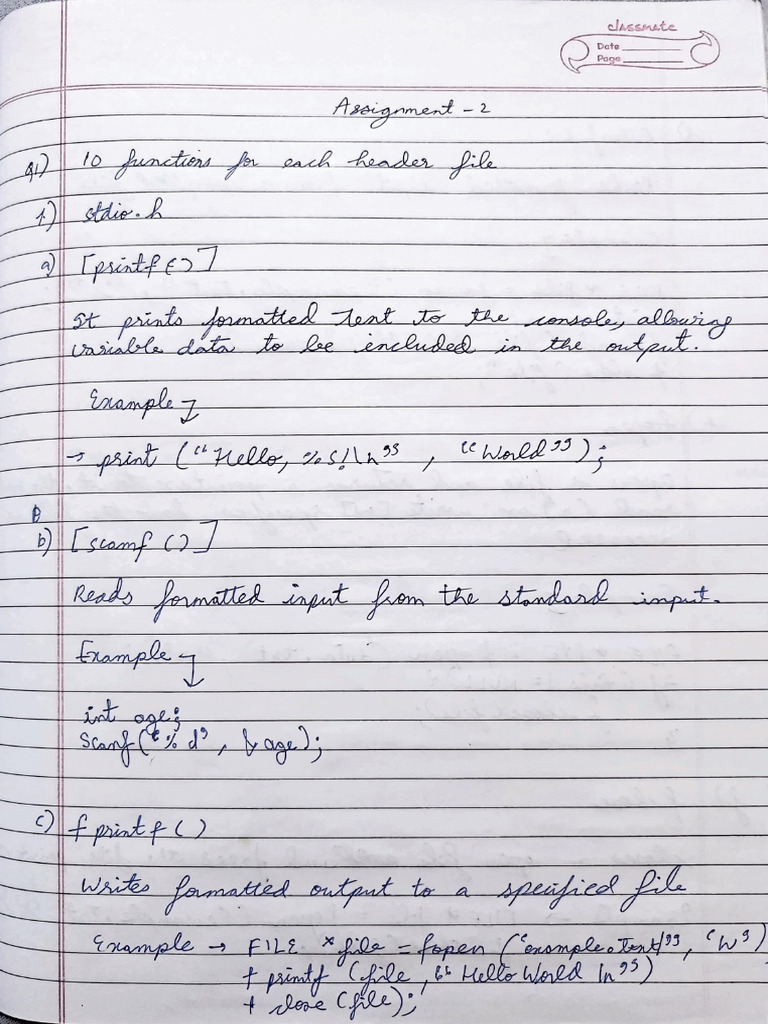 classmate
Date
Page
Assignment - 2
Q1) 10 functions for each header file
1) stdio.h
a) [printf()]
It prints formatted text to the console, allowing
variable data to be included in the output.
Example
→ print ("Hello, %s!\n" , "World");
b) [scanf ()]
Reads formatted input from the standard input.
Example
int age;
Scanf("%d", &age);
c) fprintf()
Writes formatted output to a specified file
Example → FILE *file = fopen ("example.text", "w")
f printf (file, "Hello World \n")
f close (file);